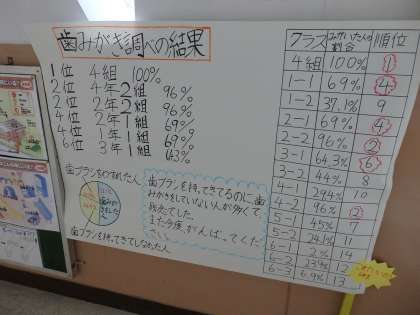 歯みがき調べの結果
1位 4組 100%
2位 4年2組 96%
2位 2年2組 96%
4位 2年1組 69%
4位 1年1組 69%
6位 3年1組 64.3%
歯ブラシをわすれた人
歯ブラシを持ってきてるのに、歯
みがきをしていない人が多くて
残念でした。
また今度、がんばってくだ
さい。
歯ブラシ持ってきてしなかった人
クラス みがいた人の割合 順位
4組 100% 1
1-1 69% 4
1-2 37.1% 9
2-1 69% 4
2-2 96% 2
3-1 64.3% 6
3-2 44% 8
4-1 29.4% 10
4-2 96% 2
5-1 45% 7
5-2 24.1% 11
6-1 2% 14
6-2 23% 12
6-3 6.9% 13